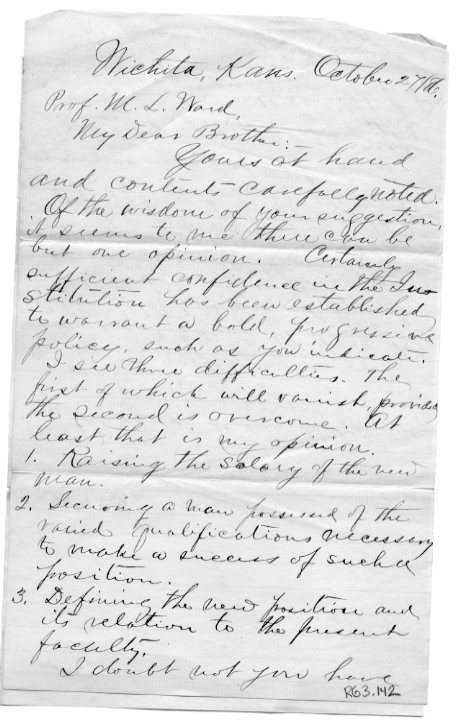 Wichita, Kans. October 27/86.
Prof. M. L. Ward,
My Dear Brother:-
Yours at hand
and contents carefully noted.
Of the wisdom of your suggestion,
it seems to me there can be
but one opinion. Certainly
sufficient confidence in the In-
stitution has been established
to warrant a bold, progressive
policy, such as you indicate.
I see three difficulties. The
first of which will vanish, provided
the second is overcome. At
least that is my opinion.
1. Raising the salary of the new
man.
2. Securing a man possessed of the
varied qualifications necessary
to make a success of such a
position.
3. Defining the new position and
its relation to the present
faculty.
I doubt not you have
RG3.142